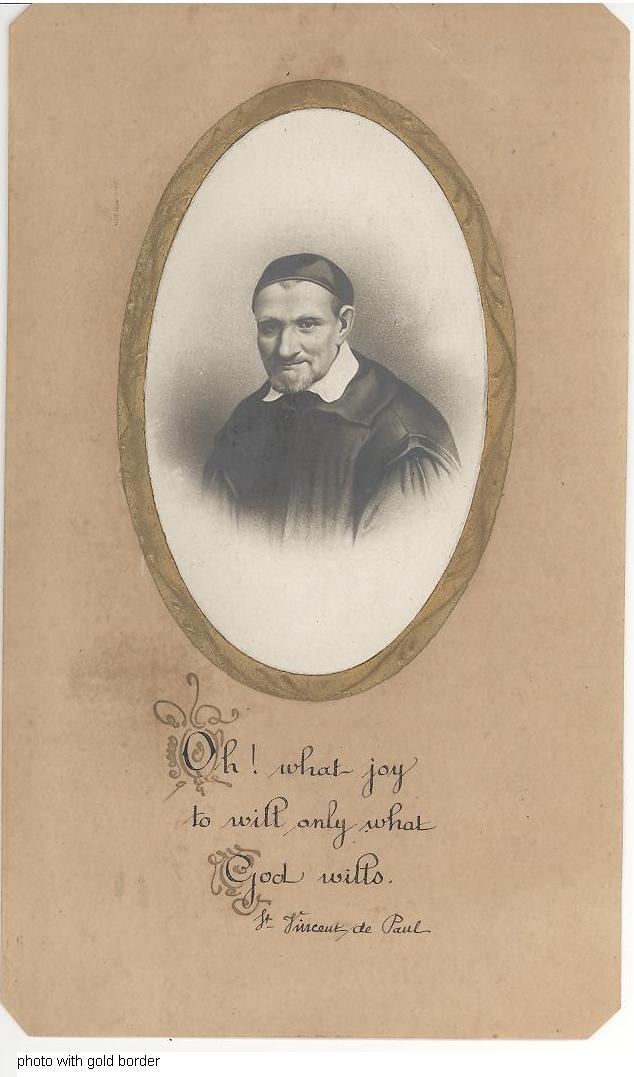 Oh! what joy
to will only what
God wills.
St Vincent de Paul
photo with gold border